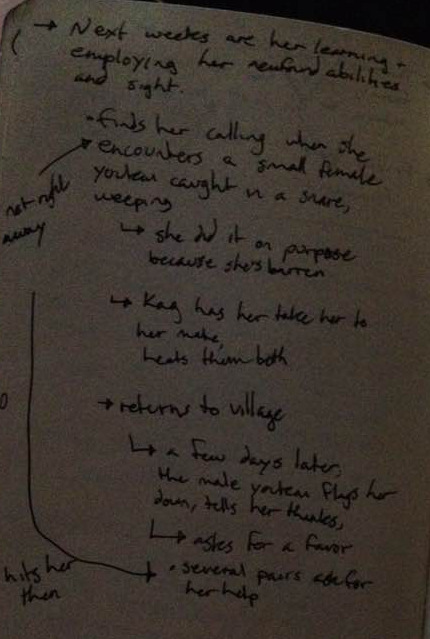 → Next weekes are her learning +
employing her newfound abilities
and sight.
• finds her calling when she
encounters a small female
youteau caught in a snare,
weeping
not right
away
↳ she did it on purpose
because she's barren
↳ Kag has her take her to
her mate,
heals them both
→ returns to village
↳ a few days later,
the male youteau flags her
down, tells her thanks,
↳ asks for a favor
• several pairs ask for
her help
hits her
then